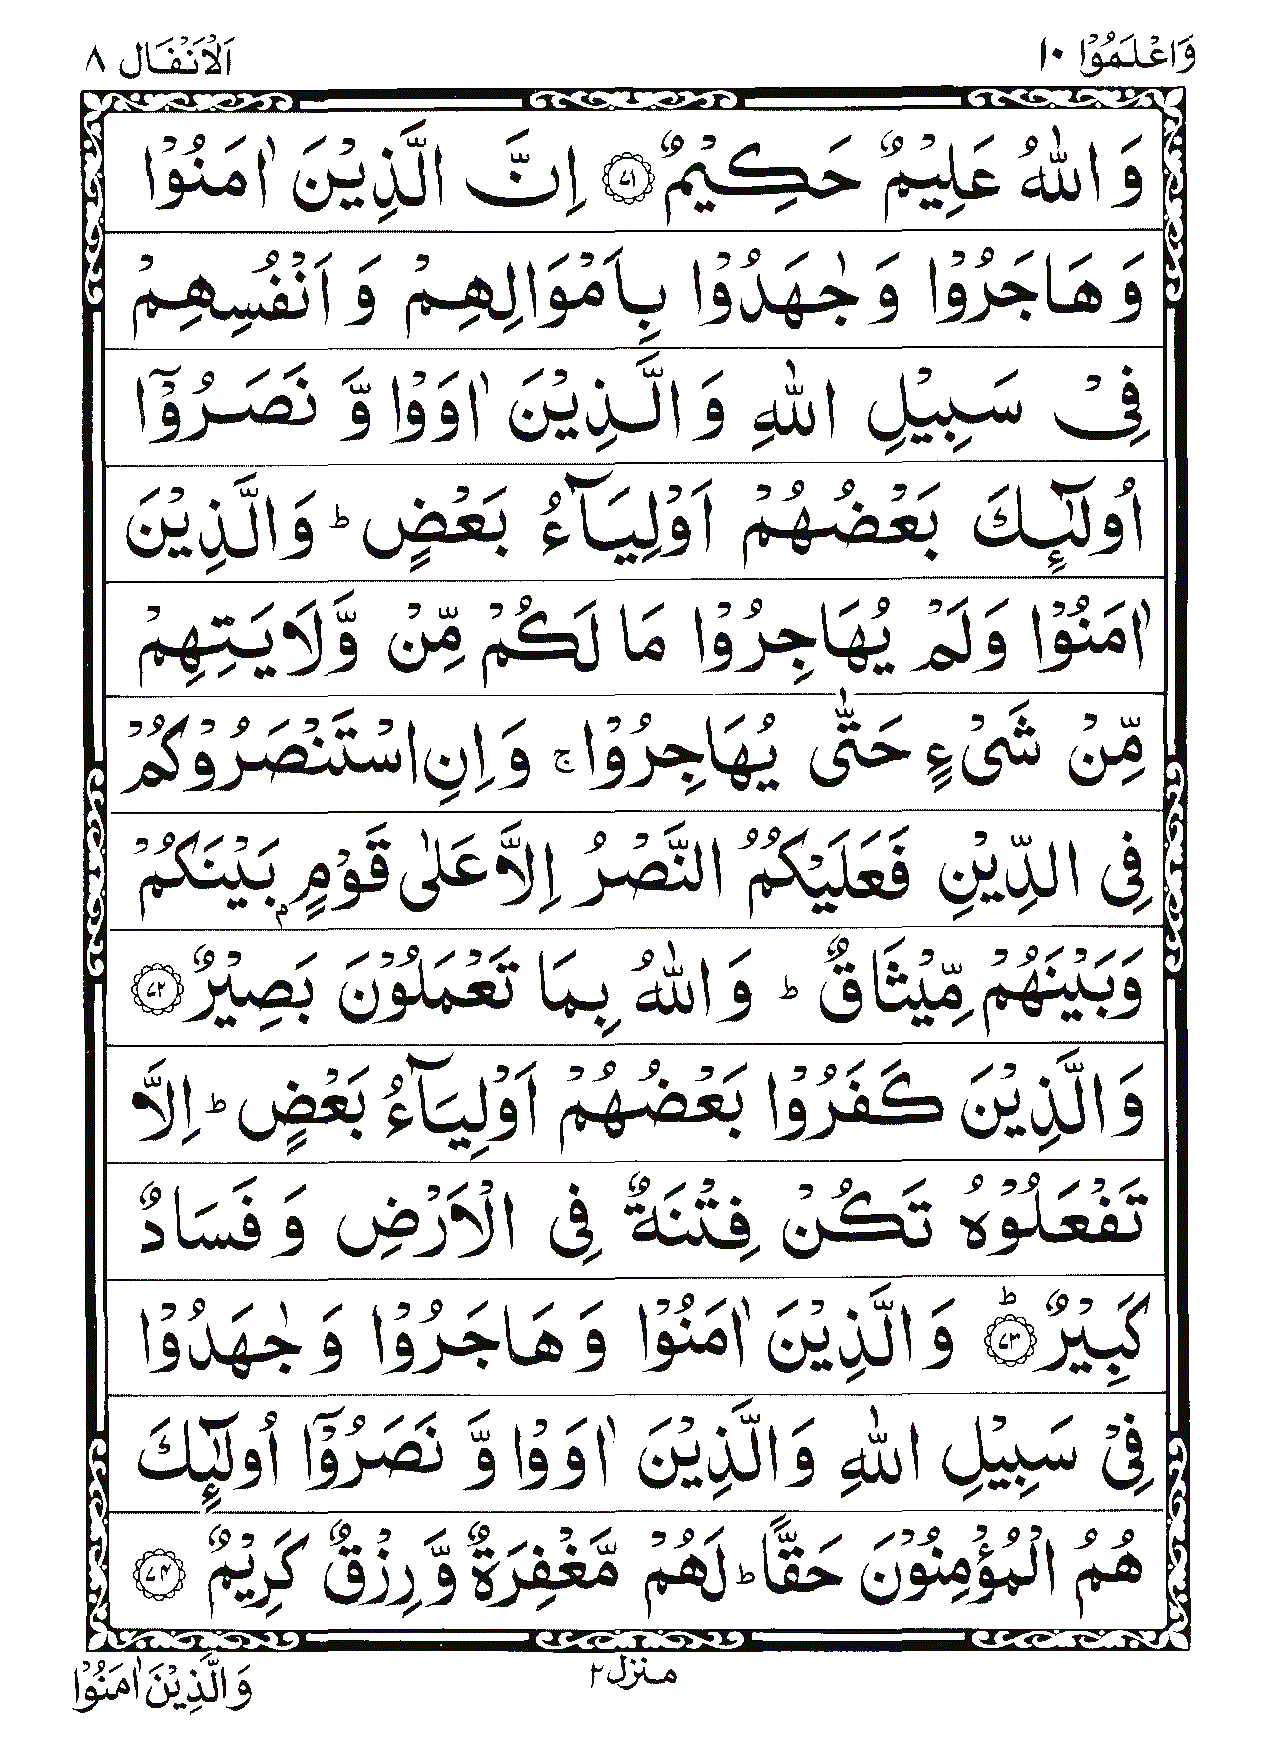 وَاعْلَمُوْا ١٠ اَلْاَنْفَال ٨
وَ اللهُ عَلِيْمٌ حَكِيْمٌ ﴿٧١﴾ اِنَّ الَّذِيْنَ اٰمَنُوْا
وَ هَاجَرُوْا وَ جٰهَدُوْا بِاَمْوَالِهِمْ وَ اَنْفُسِهِمْ
فِىْ سَبِيْلِ اللهِ وَ الَّذِيْنَ اٰوَوْا وَّ نَصَرُوْٓا
اُولٰٓئِكَ بَعْضُهُمْ اَوْلِيَآءُ بَعْضٍ ؕ وَ الَّذِيْنَ
اٰمَنُوْا وَ لَمْ يُهَاجِرُوْا مَا لَكُمْ مِّنْ وَّلَايَتِهِمْ
مِّنْ شَىْءٍ حَتّٰى يُهَاجِرُوْا ۚ وَ اِنِ اسْتَنْصَرُوْكُمْ
فِى الدِّيْنِ فَعَلَيْكُمُ النَّصْرُ اِلَّا عَلٰى قَوْمٍۭ بَيْنَكُمْ
وَبَيْنَهُمْ مِّيْثَاقٌ ؕ وَ اللهُ بِمَا تَعْمَلُوْنَ بَصِيْرٌ ﴿٧٢﴾
وَ الَّذِيْنَ كَفَرُوْا بَعْضُهُمْ اَوْلِيَآءُ بَعْضٍ ؕ اِلَّا
تَفْعَلُوْهُ تَكُنْ فِتْنَةٌ فِى الْاَرْضِ وَ فَسَادٌ
كَبِيْرٌ ؕ ﴿٧٣﴾ وَ الَّذِيْنَ اٰمَنُوْا وَ هَاجَرُوْا وَ جٰهَدُوْا
فِىْ سَبِيْلِ اللهِ وَ الَّذِيْنَ اٰوَوْا وَّ نَصَرُوْٓا اُولٰٓئِكَ
هُمُ الْمُؤْمِنُوْنَ حَقًّا ؕ لَهُمْ مَّغْفِرَةٌ وَّ رِزْقٌ كَرِيْمٌ ﴿٧٤﴾
منزل ٢
وَ الَّذِيْنَ اٰمَنُوْا